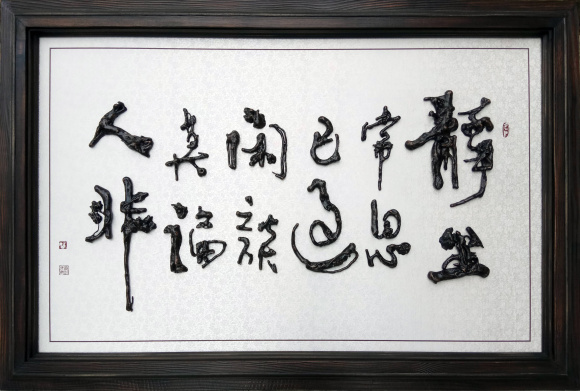 靜坐
常思
己過
閑談
莫論
人非